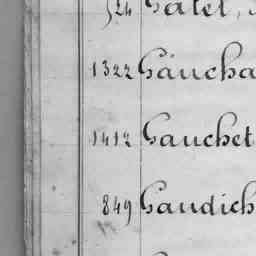 524 Gatet,
1322 Gaucha
1412 Gauchet
849 Gaudich